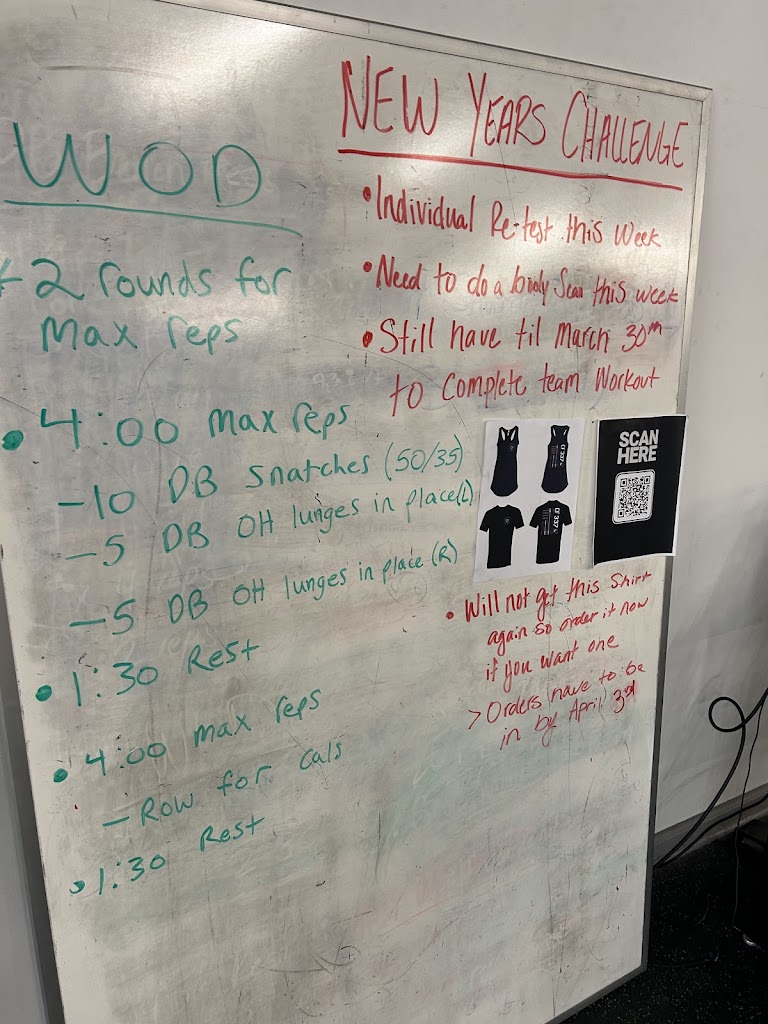 WOD
* 2 rounds for
max reps
• 4:00 max reps
- 10 DB snatches (50/35)
- 5 DB OH lunges in place (L)
- 5 DB OH lunges in place (R)
• 1:30 Rest
• 4:00 max reps
- Row for cals
• 1:30 Rest
NEW YEARS CHALLENGE
• Individual Re-test this week
• Need to do a body scan this week
• Still have til March 30th
to complete team workout
SCAN
HERE
• Will not get this shirt
again so order it now
if you want one
> Orders have to be
in by April 3rd